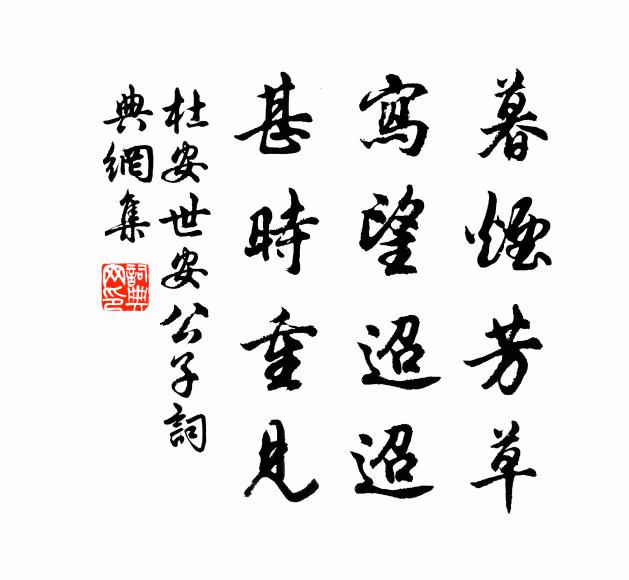 暮煙芳草
寫望迢迢
甚時重見
杜安世安公子詞
典網集
詞典網印